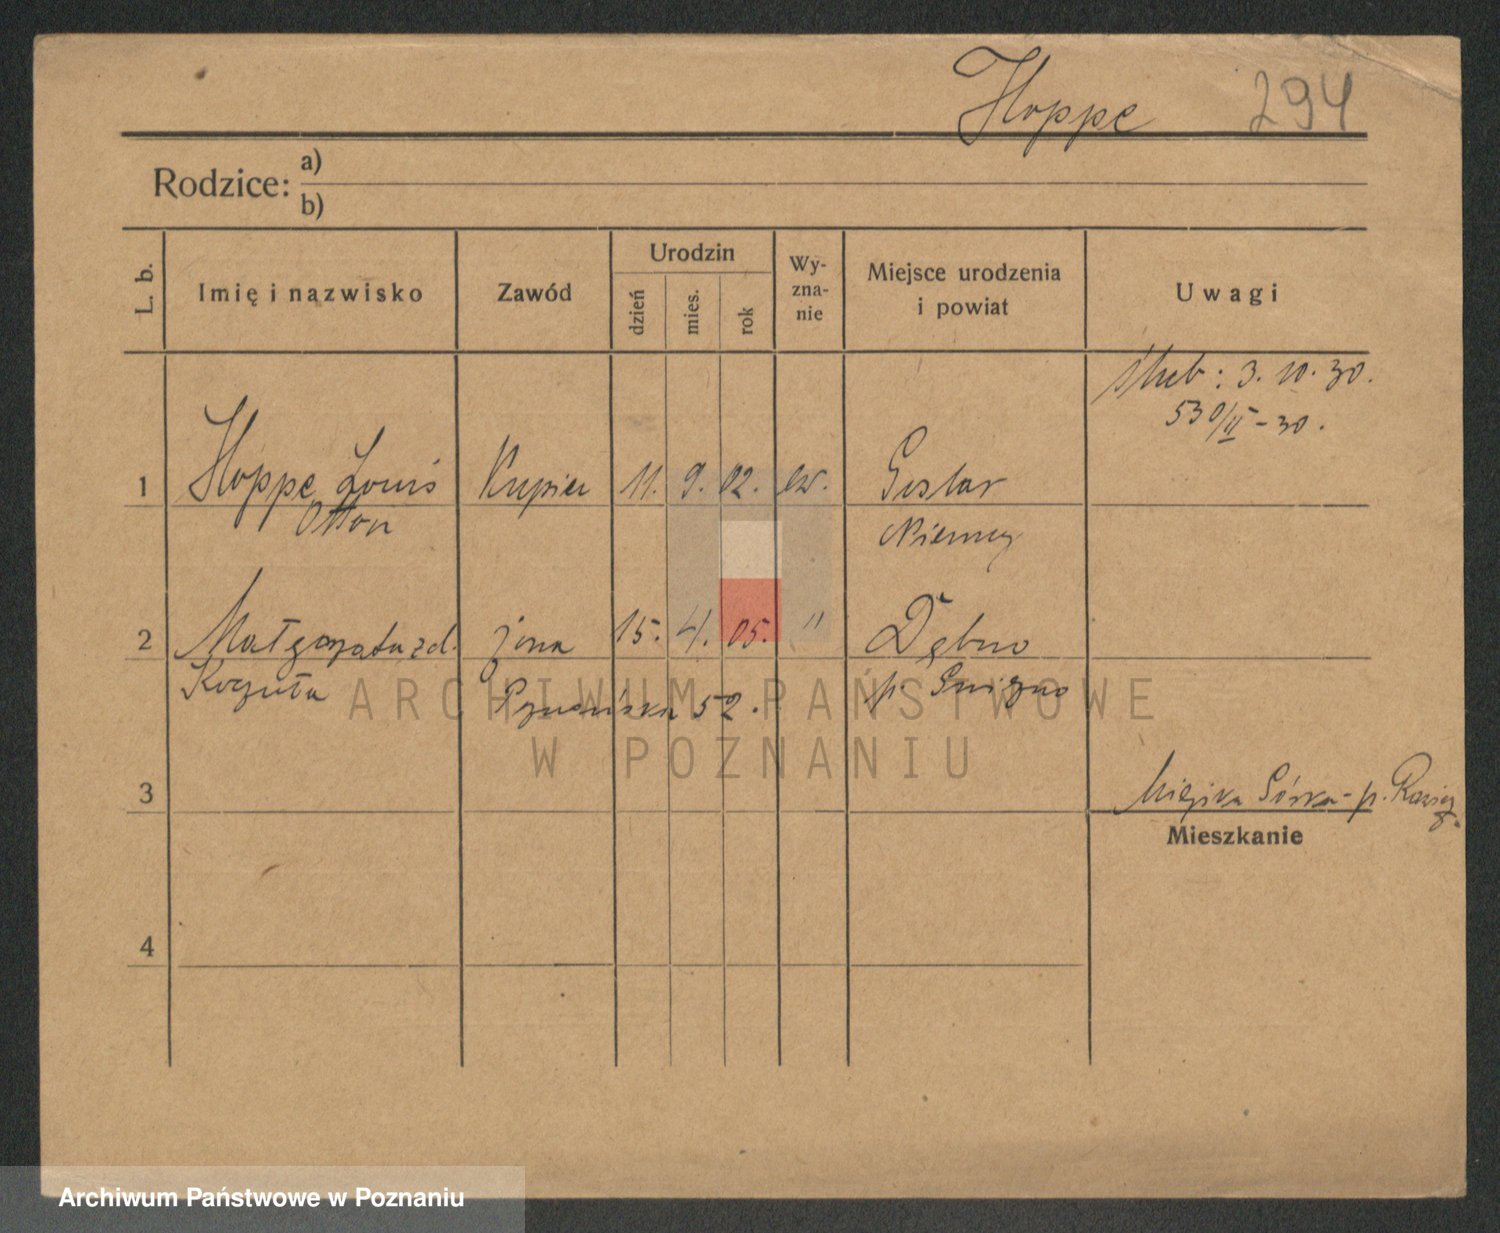 Hoppe 294
Rodzice: a)
b)
L. b. Imię i nazwisko Zawód Urodzin dzień mies. rok Wy-zna-nie Miejsce urodzenia i powiat Uwagi
ślub: 3. 10. 30.
530/II - 30.
1 Hoppe Louis Kupiec 11. 9. 02. ew. Goslar
Otton Niemcy
2 Małgorzata zd. żona 15. 4. 05. " Dębno
Koszuta Poznańska 52. p. Gniezno
ARCHIWUM PAŃSTWOWE
W POZNANIU
3 Miejska Górka - p. Rawicz.
Mieszkanie
4
Archiwum Państwowe w Poznaniu